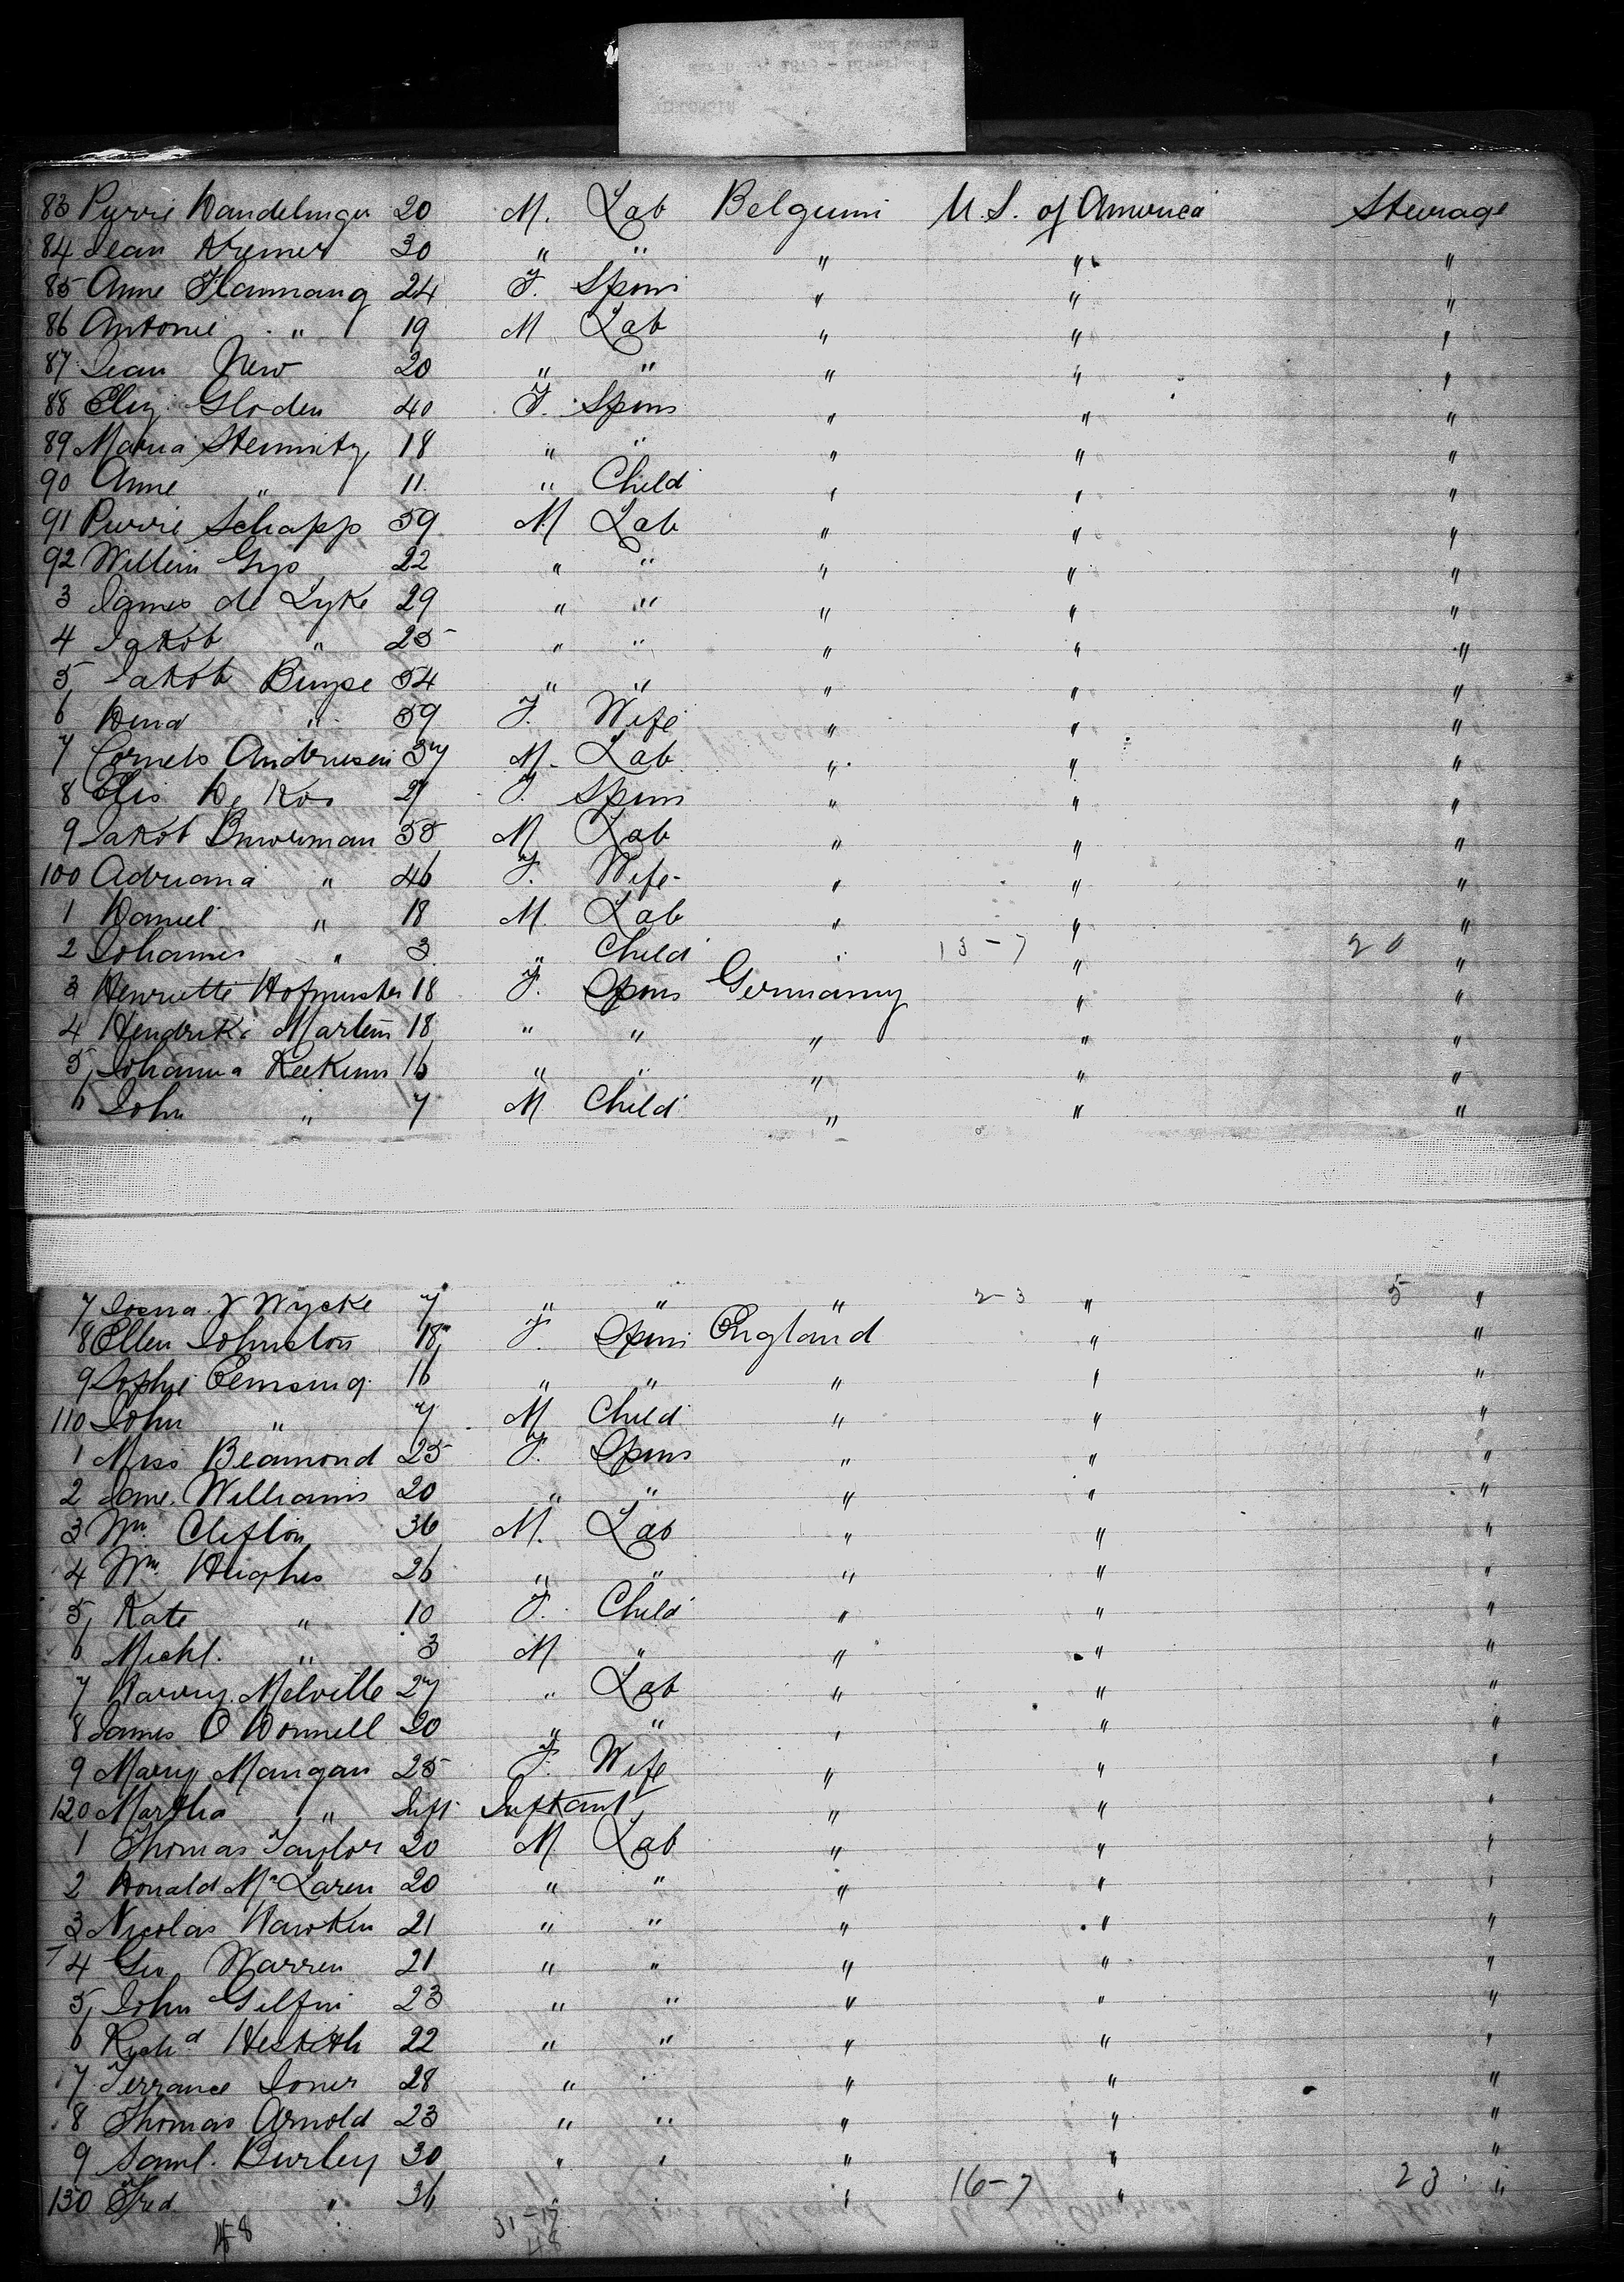 83 Pierre Dandelinger 20 M. Lab Belgium U.S. of America Steerage
84 Jean Kremer 30 " " " " "
85 Anne Flammang 24 F. Spins " " "
86 Antonie " 19 M Lab " " "
87 Jean New 20 " " " " "
88 Eliz Gloden 40 F. Spins " " "
89 Maria Steinmitz 18 " " " " "
90 Anne " 11 " Child " " "
91 Pierre Schapp 59 M Lab " " "
92 Willem Gijs 22 " " " " "
3 James de Lyke 29 " " " " "
4 Jakob " 25 " " " " "
5 Jakob Buyse 54 " " " " "
6 Dena " 59 F. Wife " " "
7 Cornels Andriesen 37 M. Lab " " "
8 Elis De Kos 27 F. Spins " " "
9 Jakob Buurman 55 M Lab " " "
100 Adriana " 46 F. Wife " " "
1 Daniel " 18 M. Lab " " "
2 Johannes " 3 " Child " 13-7 " 20 "
3 Henriette Hofmeister 18 F. Spins Germany " "
4 Hendrike Martens 18 " " " " "
5 Johanna Reekum 16 " " " " "
6 John " 7 M Child " " "
7 V Wycke 7 " " " 2-3 " 5 "
8 Ellen Johnston 18 F. Spins England " "
9 Sophie Elmsing 16 " " " " "
110 John " 7 M Child " " "
1 Miss Beamond 25 F. Spins " " "
2 Jane Williams 20 " " " " "
3 Wm. Clifton 36 M. Lab " " "
4 Wm. Hughes 26 " " " " "
5 Kate " 10 F. Child " " "
6 Michl. " 3 M " " " "
7 Harry Melville 27 " Lab " " "
8 James O Donnell 20 " " " " "
9 Mary Mangan 25 F. Wife " " "
120 Martha " Inft Inftant " " "
1 Thomas Taylor 20 M Lab " " "
2 Donald McLaren 20 " " " " "
3 Nicolas Hawken 21 " " " " "
4 Geo Warren 21 " " " " "
5 John Gilfin 23 " " " " "
6 Richd Hesketh 22 " " " " "
7 Terrance Jones 28 " " " " "
8 Thomas Arnold 23 " " " " "
9 Saml. Burley 30 " " " " "
130 Fred " 36 " " " 16-7 " 23 "
48 31-17
48